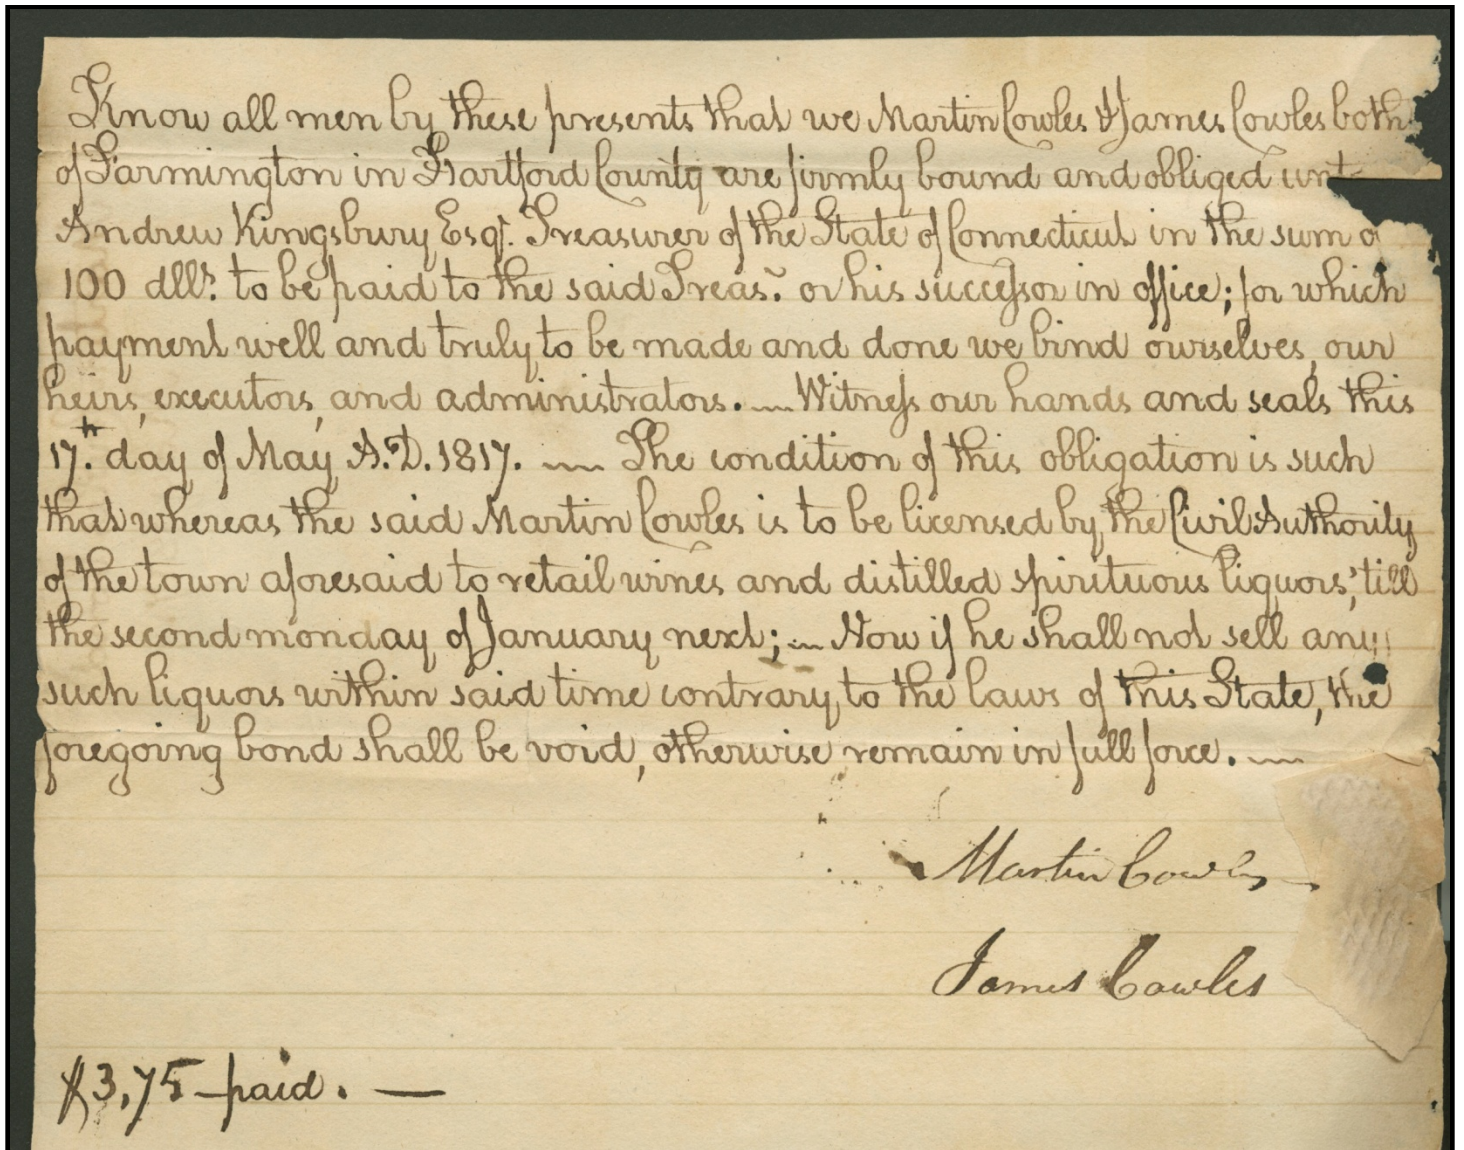 Know all men by these presents that we Martin Cowles & James Cowles both
of Farmington in Hartford County are firmly bound and obliged unt
Andrew Kingsbury Esqr. Treasurer of the State of Connecticut in the sum o
100 dlls. to be paid to the said Treas.r or his successor in office; for which
payment well and truly to be made and done we bind ourselves, our
heirs, executors, and administrators. — Witness our hands and seals this
17.th day of May, A.D. 1817. — The condition of this obligation is such
that whereas the said Martin Cowles is to be licensed by the Civil Authority
of the town aforesaid to retail wines and distilled spirituous liquors, till
the second monday of January next; — Now if he shall not sell any
such liquors within said time contrary to the laws of this State, the
foregoing bond shall be void, otherwise remain in full force. —
Martin Cowles
James Cowles
$3,75 paid. —